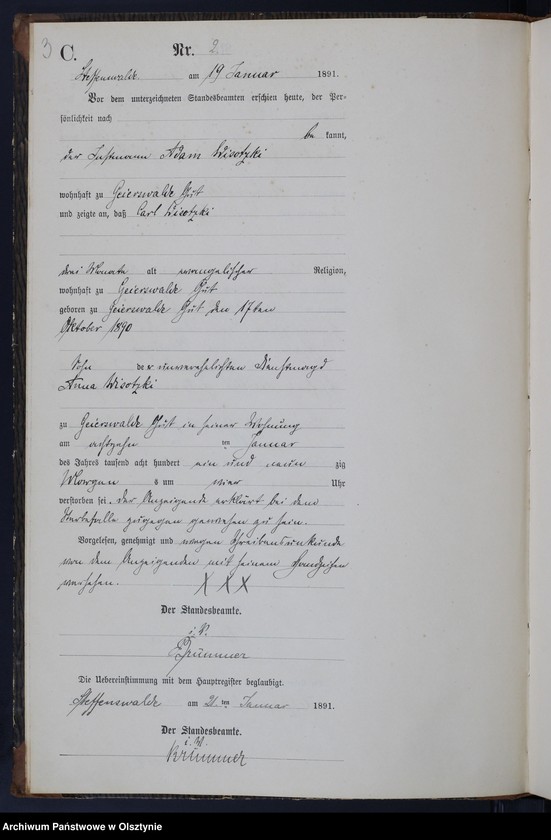 3
C.
Nr. 2
Steffenswalde am 19 Januar 1891.
Vor dem unterzeichneten Standesbeamten erschien heute, der Per-
sönlichkeit nach
be kannt,
der Instmann Adam Wisotzki
wohnhaft zu Geierswalde Gut
und zeigte an, daß Carl Wisotzki
drei Monate alt evangelischer Religion,
wohnhaft zu Geierswalde Gut
geboren zu Geierswalde Gut den 17ten
Oktober 1890
Sohn der unverehelichten Dienstmagd
Anna Wisotzki
zu Geierswalde Gut in seiner Wohnung
am achtzehn ten Januar
des Jahres tausend acht hundert ein und neun zig
Morgen s um vier Uhr
verstorben sei. Der Anzeigende erklärt bei dem
Sterbefalle zugegen gewesen zu sein.
Vorgelesen, genehmigt und wegen Schreibensunkunde
von dem Anzeigenden mit seinem Handzeichen
versehen. X X X
Der Standesbeamte.
Brümmer
Die Uebereinstimmung mit dem Hauptregister beglaubigt.
Steffenswalde am ten Januar 1891.
Der Standesbeamte.
Brümmer
Archiwum Państwowe w Olsztynie